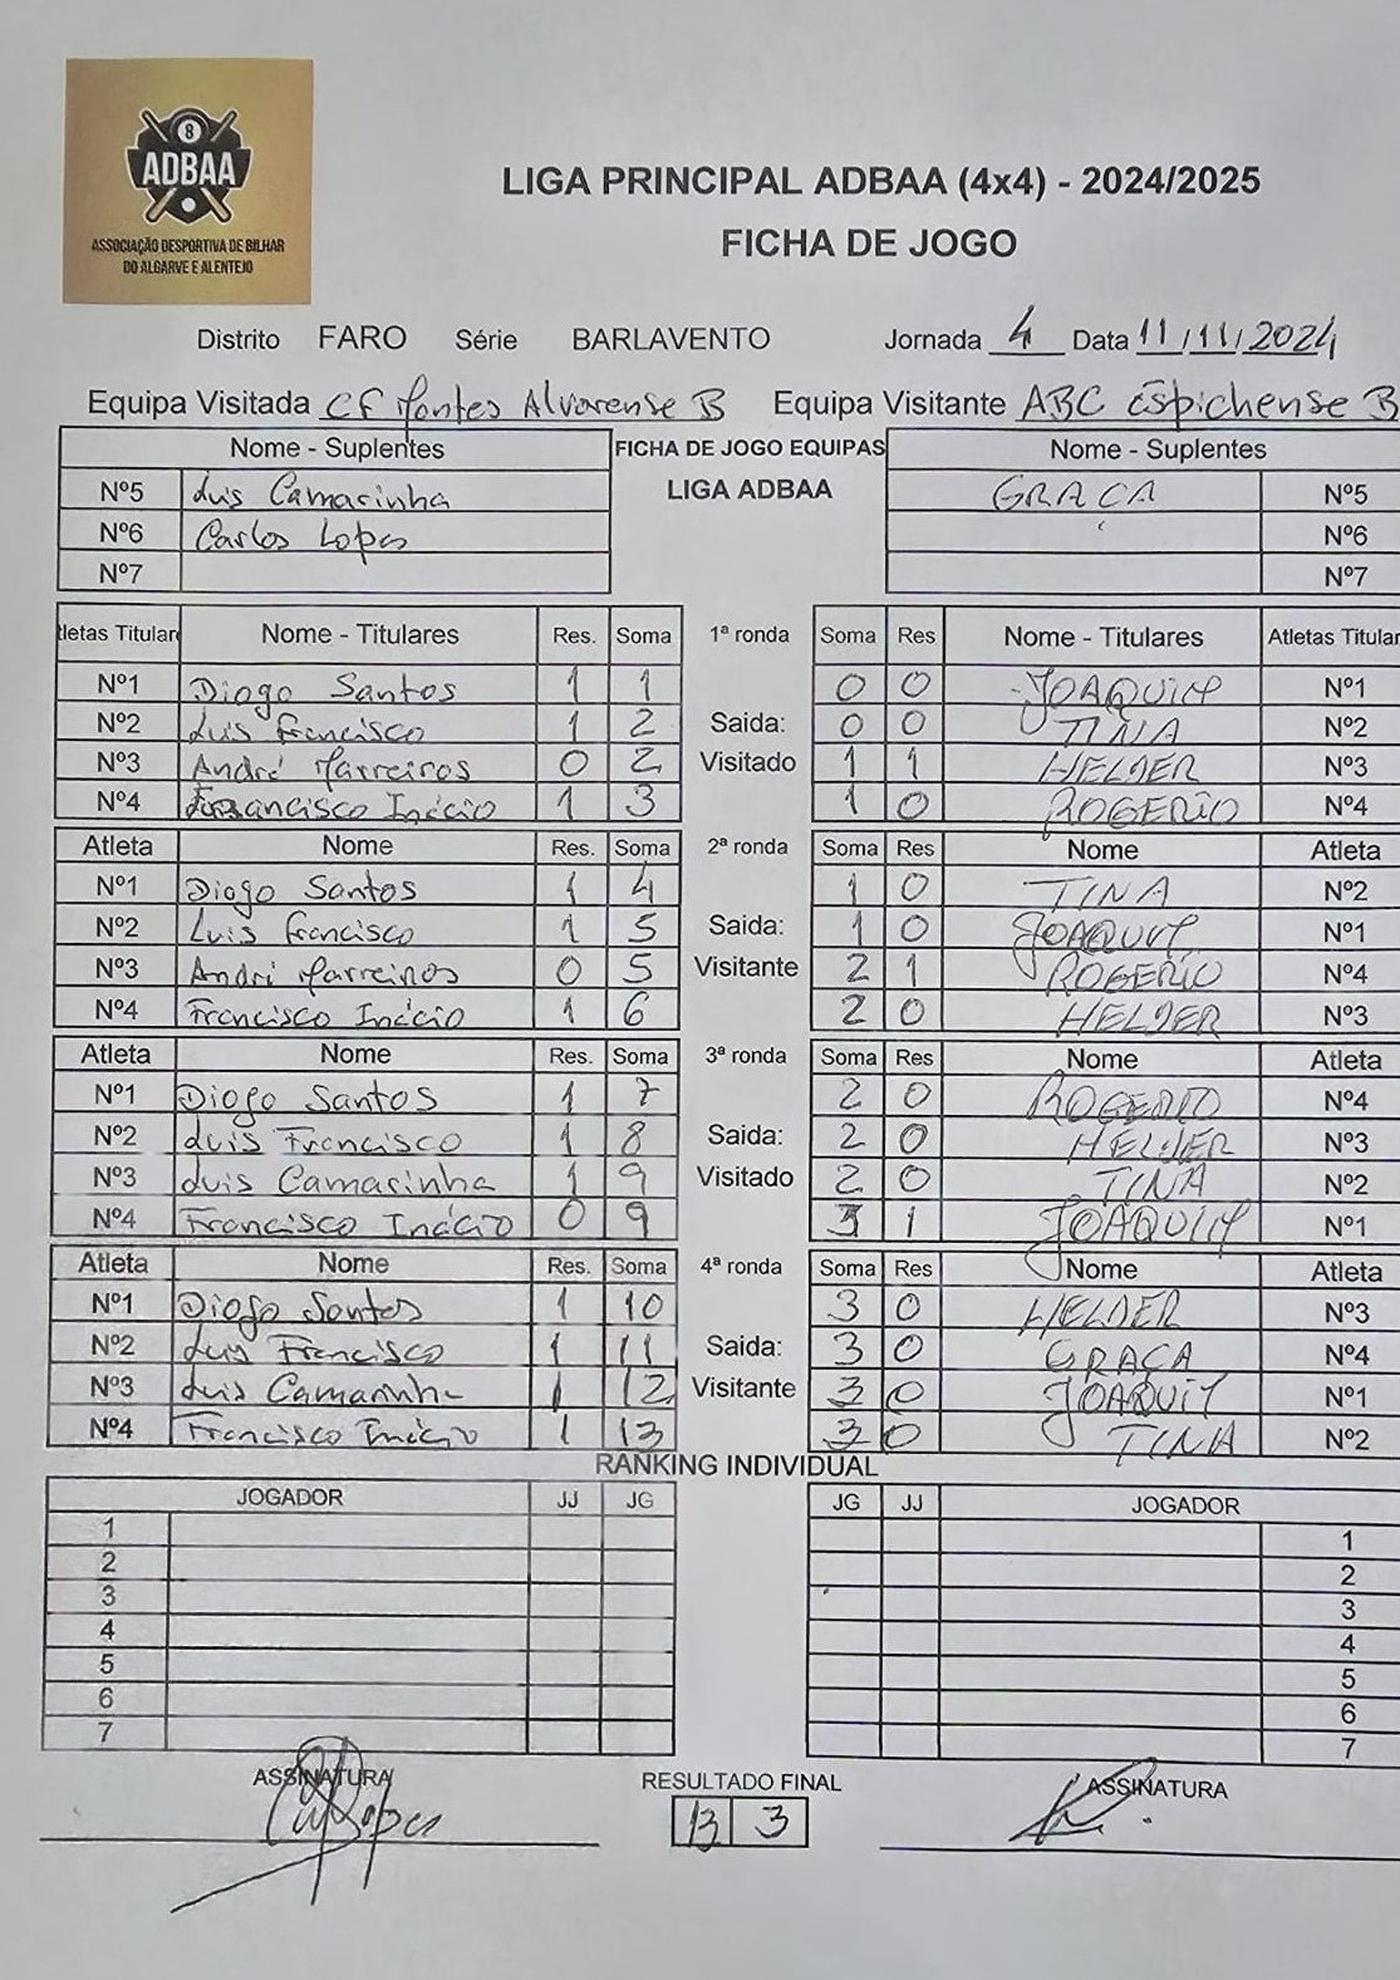 8
ADBAA
ASSOCIAÇÃO DESPORTIVA DE BILHAR
DO ALGARVE E ALENTEJO
LIGA PRINCIPAL ADBAA (4x4) - 2024/2025
FICHA DE JOGO
Distrito FARO Série BARLAVENTO Jornada 4 Data 11/11/2024
Equipa Visitada CF Montes Alvorense B Equipa Visitante ABC Espichense B
Nome - Suplentes FICHA DE JOGO EQUIPAS Nome - Suplentes
Nº5 Luis Camarinha LIGA ADBAA GRAÇA Nº5
Nº6 Carlos Lopes Nº6
Nº7 Nº7
tletas Titular Nome - Titulares Res. Soma 1ª ronda Soma Res Nome - Titulares Atletas Titular
Nº1 Diogo Santos 1 1 0 0 JOAQUIM Nº1
Nº2 Luis Francisco 1 2 Saida: 0 0 TINA Nº2
Nº3 André Marreiros 0 2 Visitado 1 1 HELDER Nº3
Nº4 Francisco Inácio 1 3 1 0 ROGERIO Nº4
Atleta Nome Res. Soma 2ª ronda Soma Res Nome Atleta
Nº1 Diogo Santos 1 4 1 0 TINA Nº2
Nº2 Luis Francisco 1 5 Saida: 1 0 JOAQUIM Nº1
Nº3 André Marreiros 0 5 Visitante 2 1 ROGERIO Nº4
Nº4 Francisco Inácio 1 6 2 0 HELDER Nº3
Atleta Nome Res. Soma 3ª ronda Soma Res Nome Atleta
Nº1 Diogo Santos 1 7 2 0 ROGERIO Nº4
Nº2 Luis Francisco 1 8 Saida: 2 0 HELDER Nº3
Nº3 Luis Camarinha 1 9 Visitado 2 0 TINA Nº2
Nº4 Francisco Inácio 0 9 3 1 JOAQUIM Nº1
Atleta Nome Res. Soma 4ª ronda Soma Res Nome Atleta
Nº1 Diogo Santos 1 10 3 0 HELDER Nº3
Nº2 Luis Francisco 1 11 Saida: 3 0 GRACA Nº4
Nº3 Luis Camarinha 1 12 Visitante 3 0 JOAQUIM Nº1
Nº4 Francisco Inácio 1 13 3 0 TINA Nº2
RANKING INDIVIDUAL
JOGADOR JJ JG JG JJ JOGADOR
1 1
2 2
3 3
4 4
5 5
6 6
7 7
ASSINATURA RESULTADO FINAL ASSINATURA
C Lopes 13 3